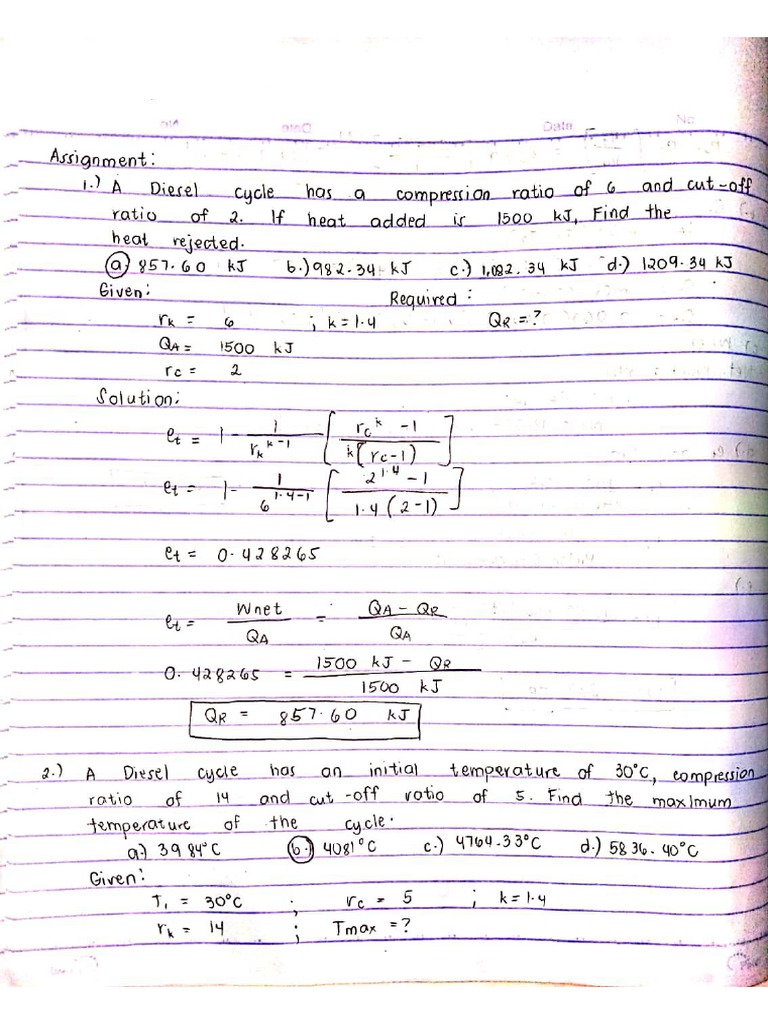 No.
Date
Assignment:
1.) A Diesel cycle has a compression ratio of 6 and cut-off
ratio of 2. If heat added is 1500 kJ, Find the
heat rejected.
a.) 857.60 kJ b.) 982.34 kJ c.) 1,082.34 kJ d.) 1209.34 kJ
Given: Required:
rk = 6 ; k = 1.4 QR = ?
QA = 1500 kJ
rc = 2
Solution:
et = 1 - 1/rk^k-1 [rc^k - 1 / k(rc-1)]
et = 1 - 1/6^1.4-1 [2^1.4 - 1 / 1.4(2-1)]
et = 0.428265
et = Wnet/QA = QA - QR/QA
0.428265 = 1500 kJ - QR / 1500 kJ
QR = 857.60 kJ
2.) A Diesel cycle has an initial temperature of 30°C, compression
ratio of 14 and cut-off ratio of 5. Find the maximum
temperature of the cycle.
a.) 3984°C b.) 4081°C c.) 4764.33°C d.) 5836.40°C
Given:
T1 = 30°C ; rc = 5 ; k = 1.4
rk = 14 ; Tmax = ?